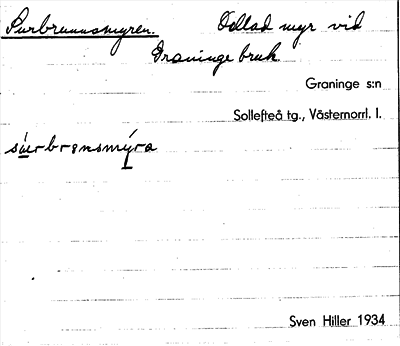 Surbrunnsmyren. Odlad myr vid
Graninge bruk.
Graninge s:n
Sollefteå tg., Västernorrl. l.
súrbrənsmýra
Sven Hiller 1934